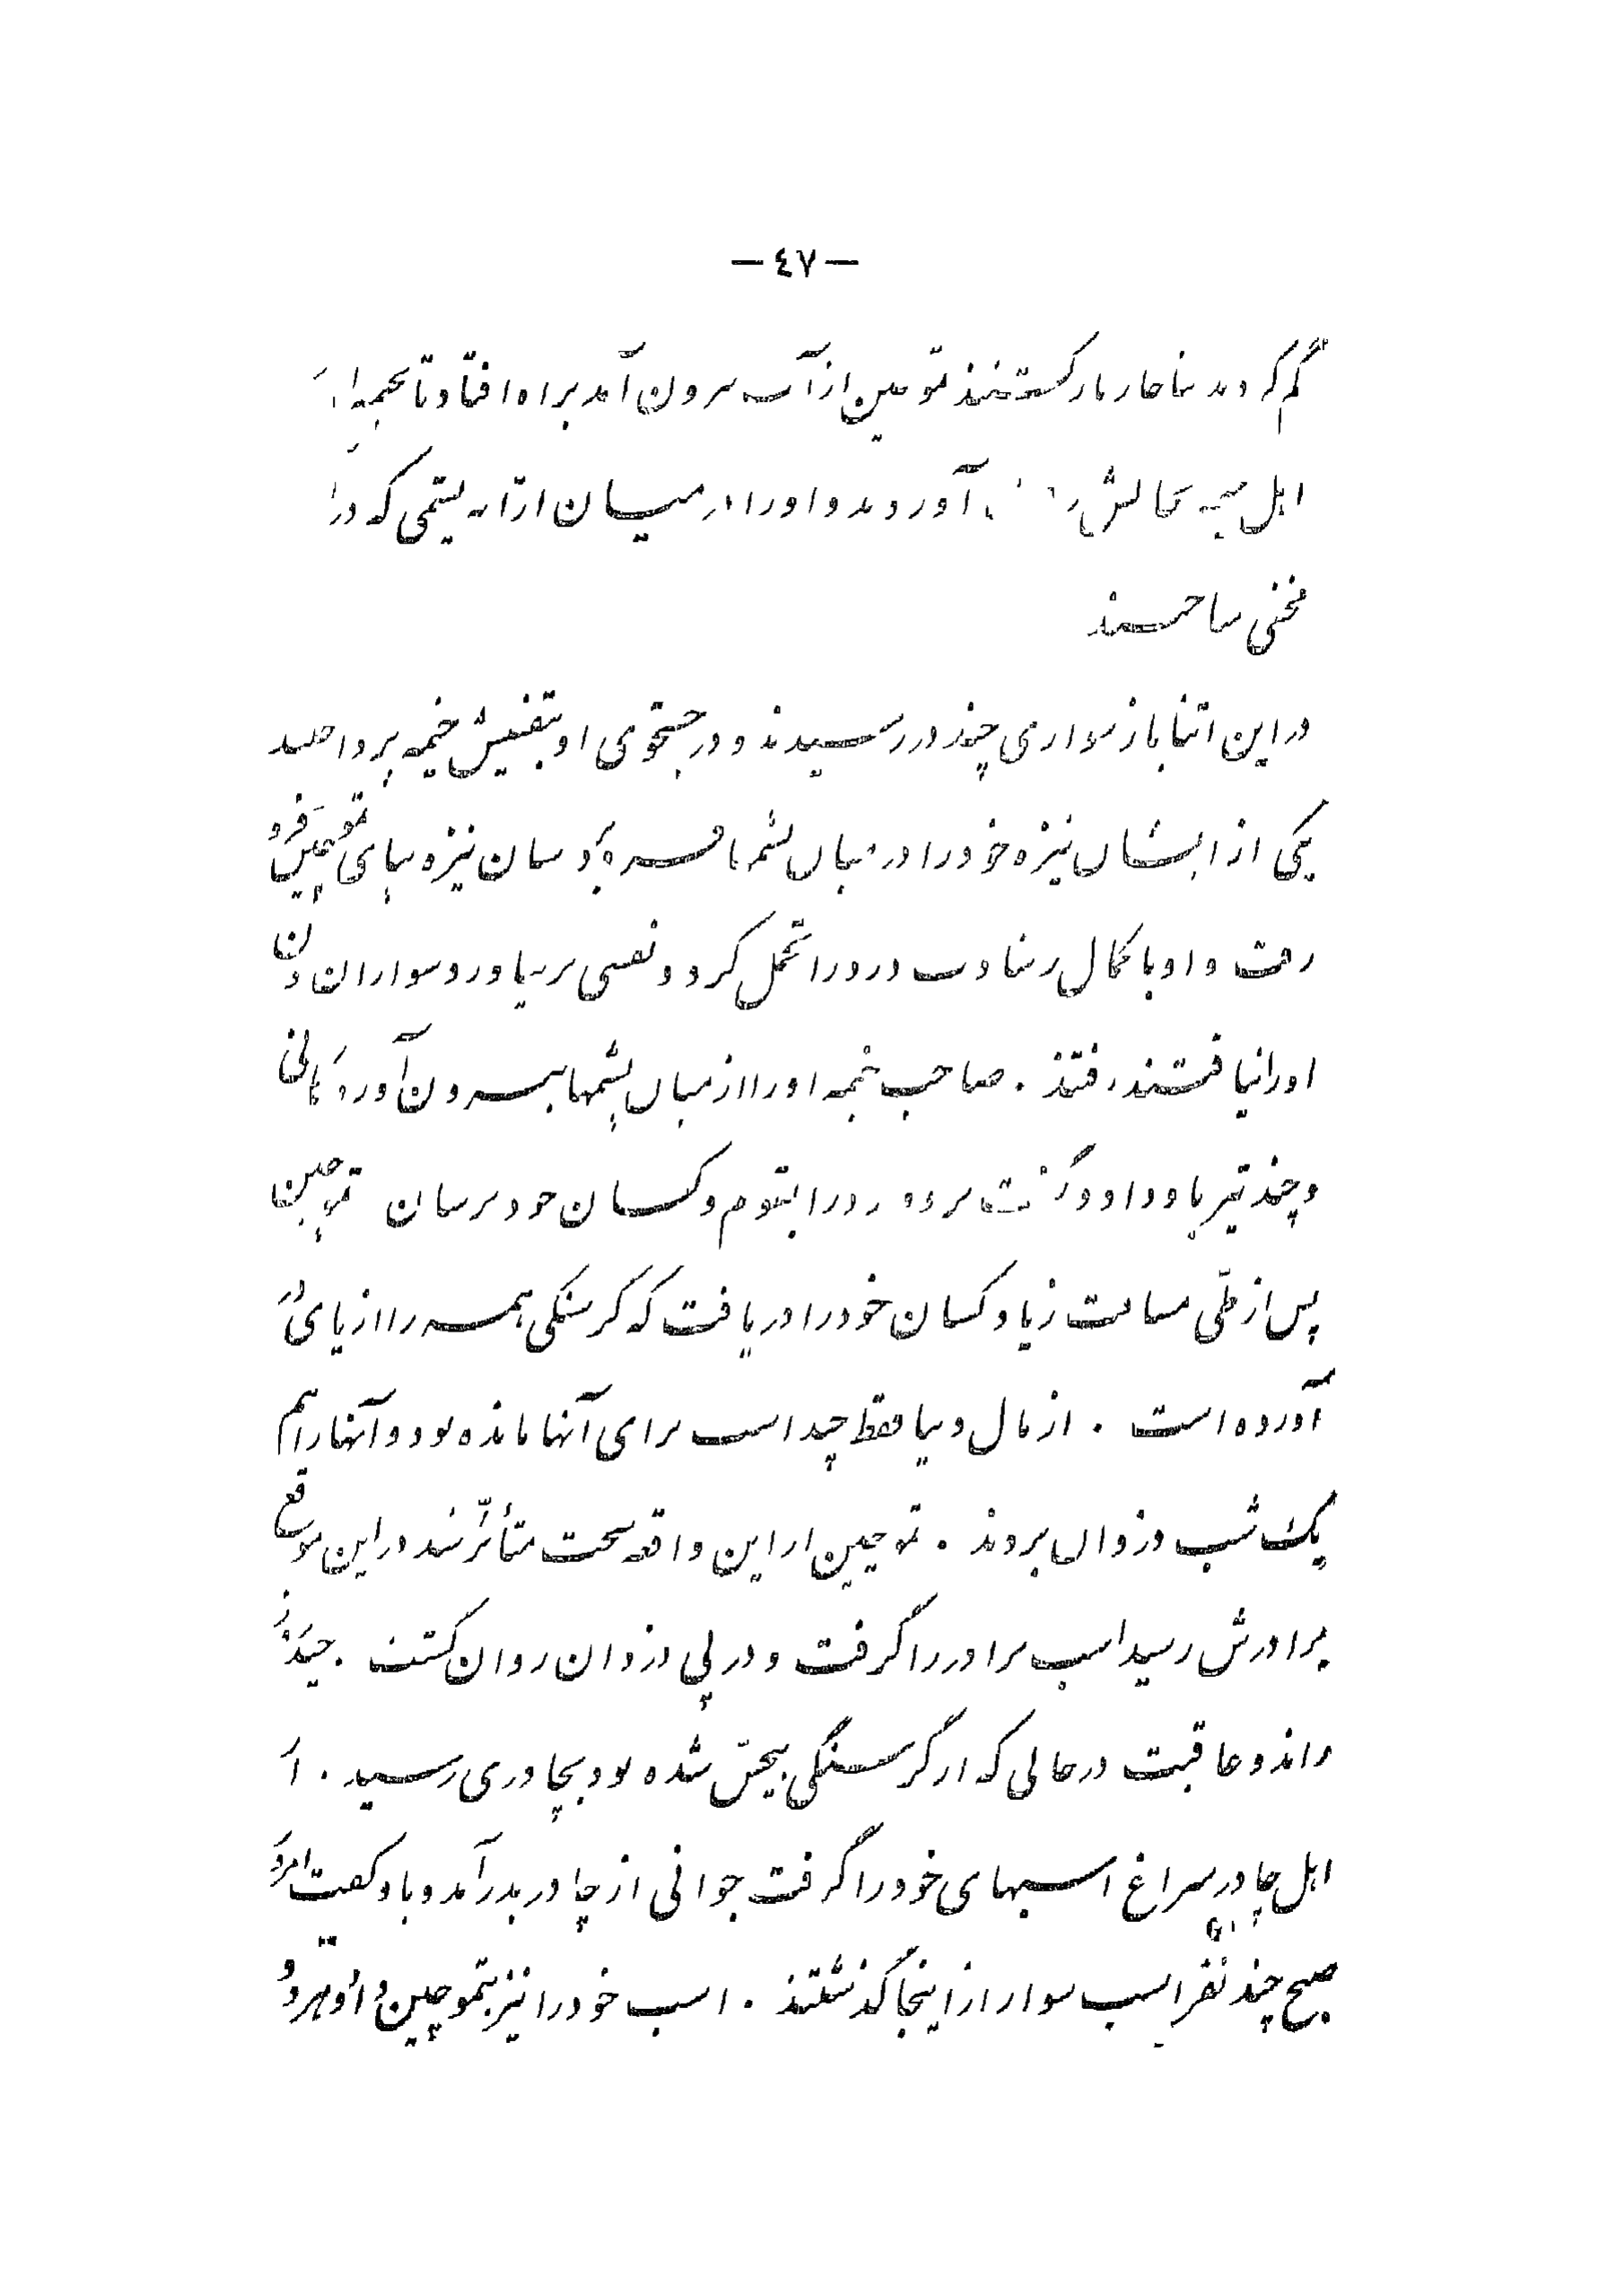 — ٤٧ —
گم کردند ناچار بازگشتند تموچین از آب بیرون آمد براه افتاد تا بخیمه
اهل خیمه بحالش آوردند و اورا در میان ارابه پشمی که در
مخفی ساختند
در این اثنا باز سواری چند در رسیدند و در جستجوی او بتفتیش خیمه پرداختند
یکی از ایشان نیزه خود را در میان پشمها فرو برد سنان نیزه بپای تموچین فرو
رفت و او با کمال رشادت درد را تحمل کرد و نفسی بر نیاورد سواران چون
اورا نیافتند رفتند . صاحب خیمه اورا از میان پشمها بیرون آورد کمانی
و چند تیر باو داد و گفت برو خود را بقوم و کسان خود برسان تموچین
پس از طیّ مسافت زیاد کسان خود را دریافت که گرسنگی همه را از پای در
آورده است . از مال دنیا فقط چند اسب برای آنها مانده بود و آنها را هم
یک شب دزدان بردند . تموچین از این واقعه سخت متأثّر شد در این موقع
برادرش رسید اسب برادر را گرفت و در پی دزدان روان گشت . چند روز
راند و عاقبت در حالی که از گرسنگی بیحسّ شده بود بچادری رسید . از
اهل چادر سراغ اسبهای خود را گرفت جوانی از چادر بدر آمد و باو گفت امروز
صبح چند نفر اسب سوار از اینجا گذشتند . اسب خود را نیز بتموچین داد